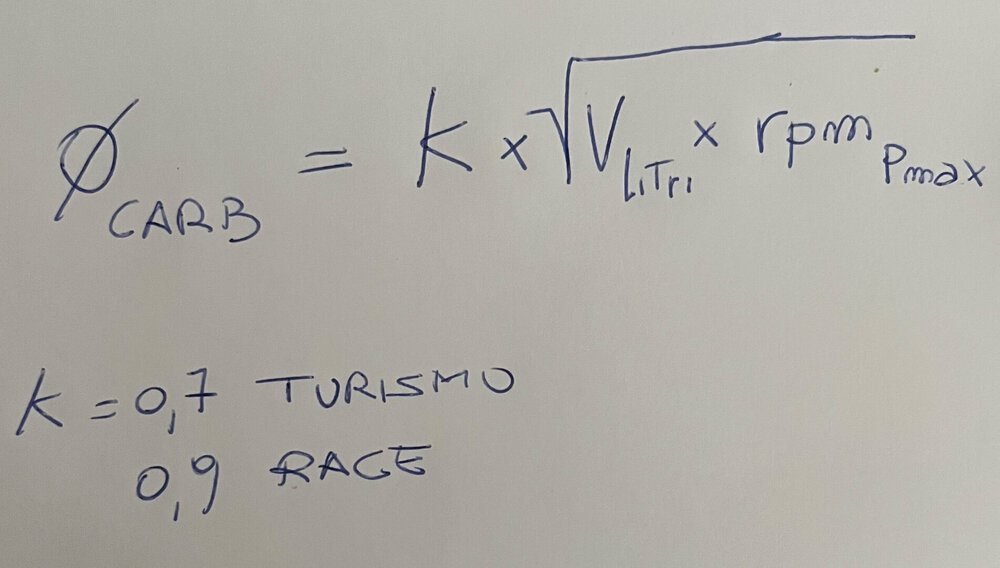 Ø CARB = K × √V LiTri × rpm Pmax
K = 0,7 TURISMO
0,9 RACE